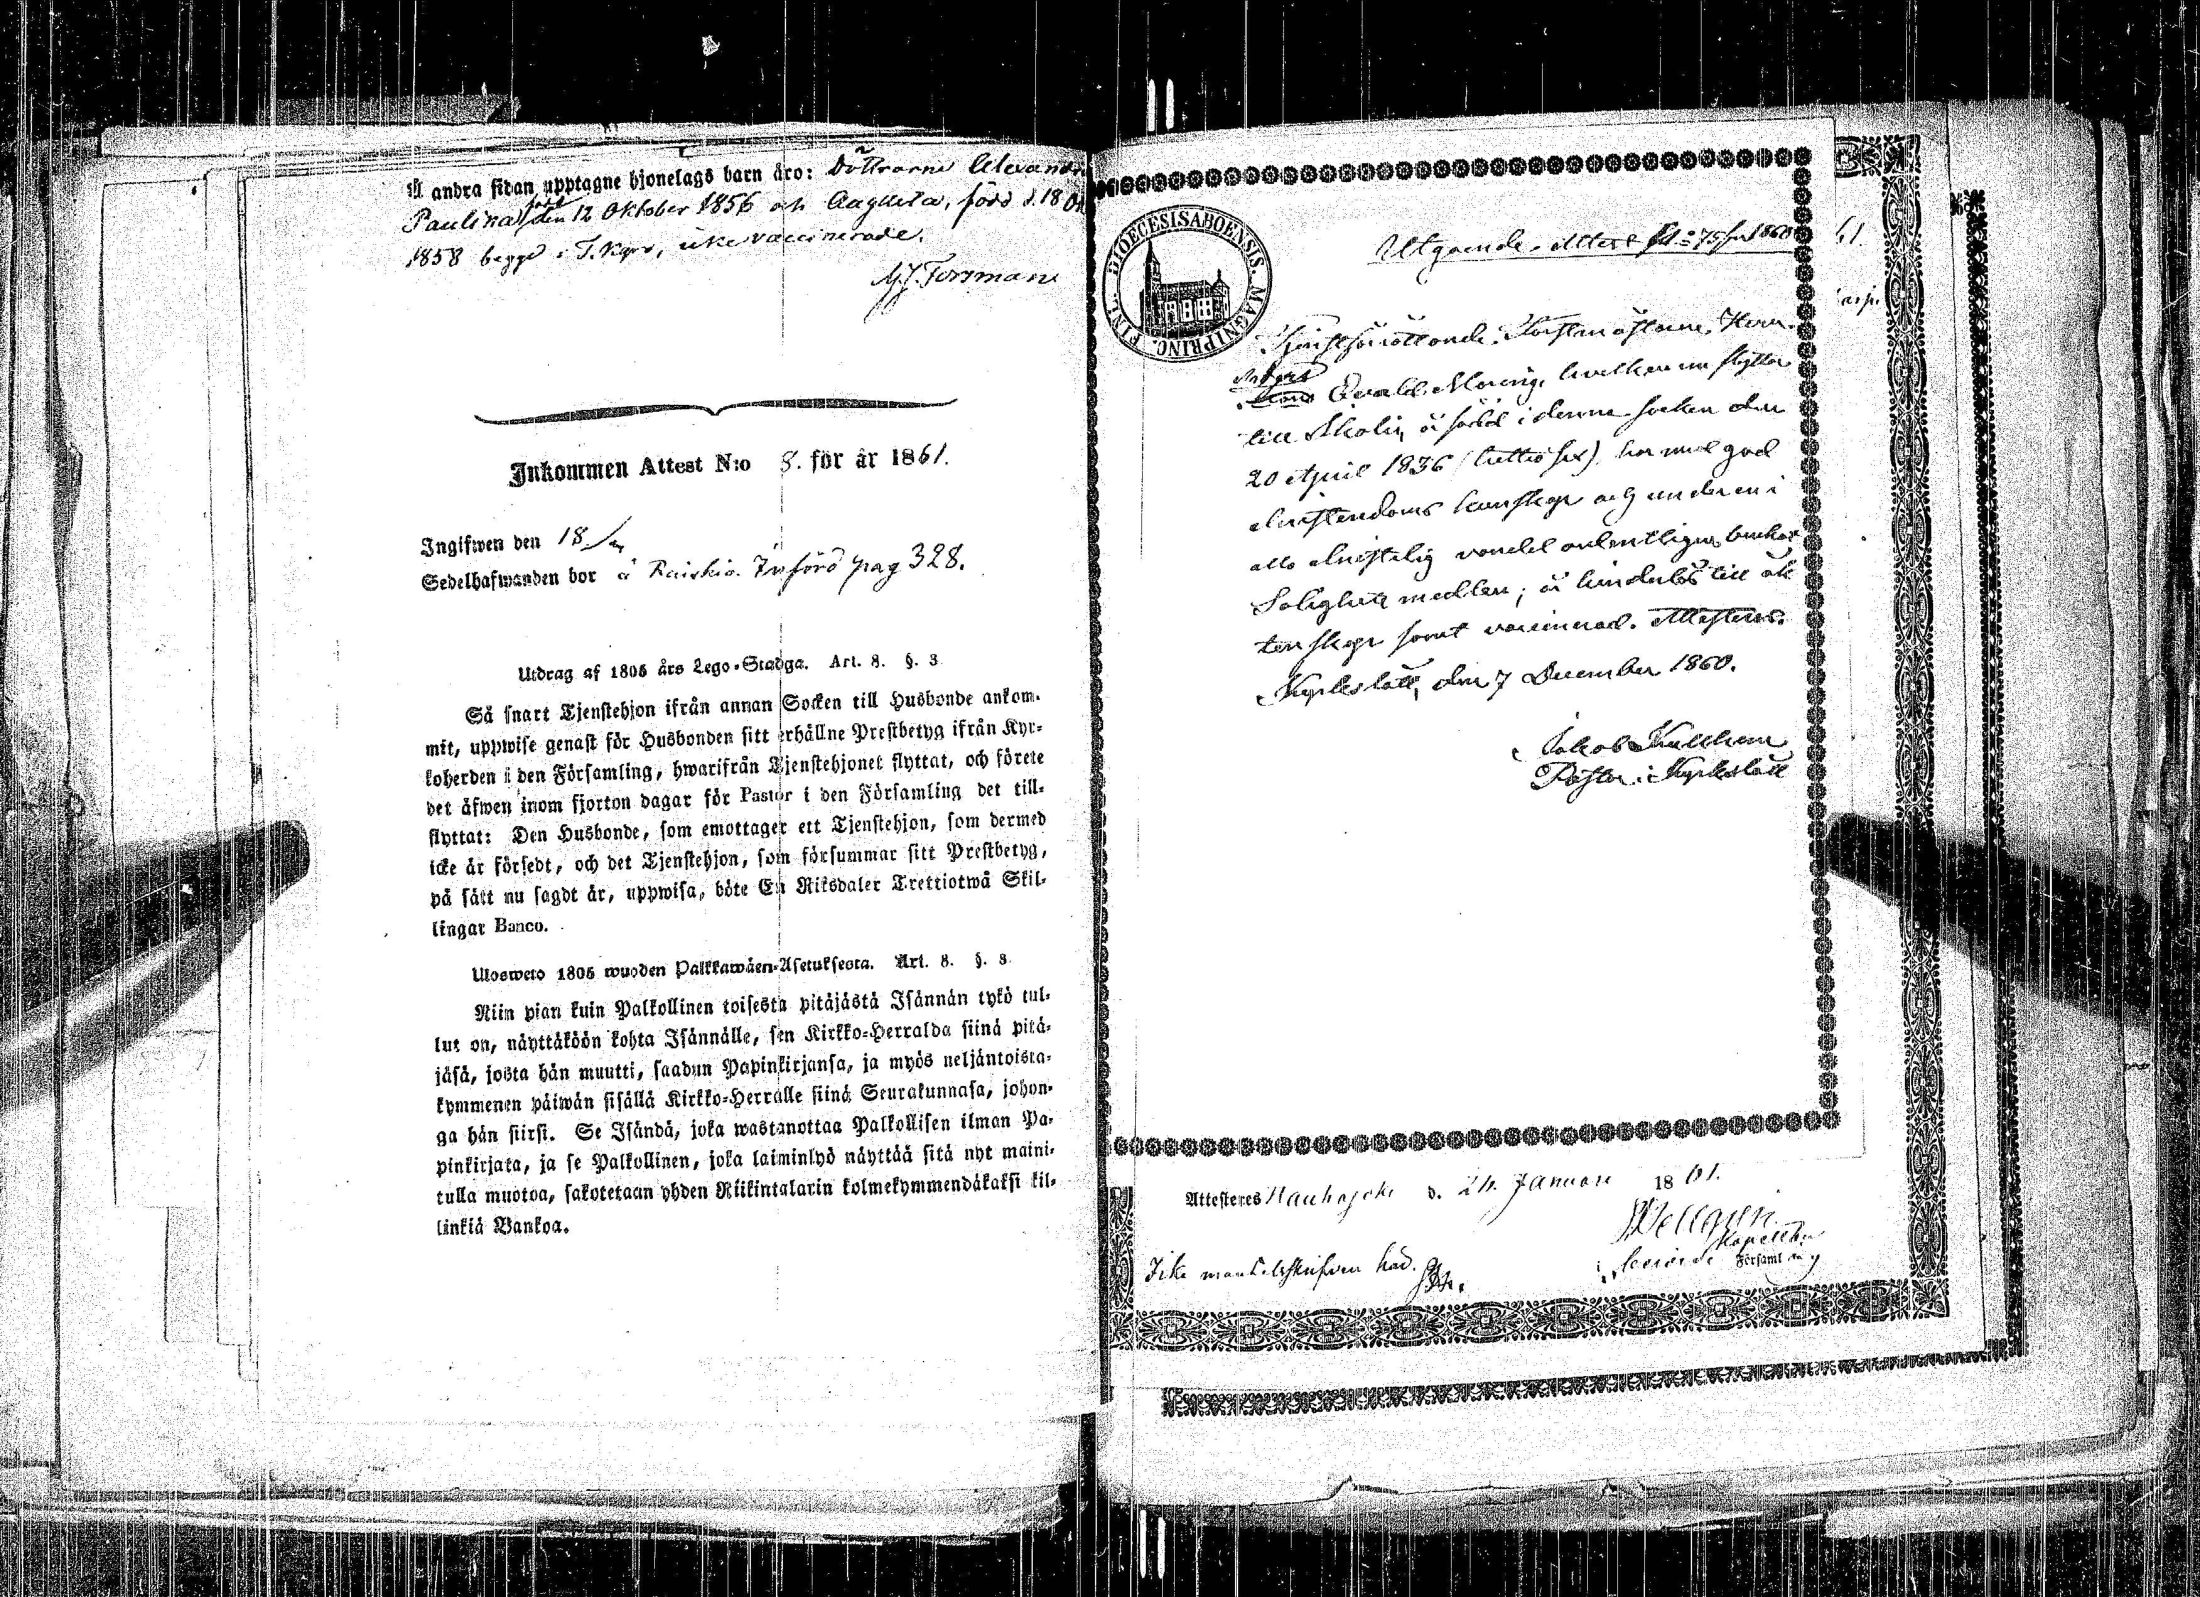 Å andra sidan upptagne hjonelags barn äro: Döttrarne Alexandra
Paulina född den 12 Oktober 1856 och Augusta, född d. 18 Okt
1858 begge i T. kyro, icke vaccinerade.
Forsman
Inkommen Attest N:o 8. för år 1861.
Ingifwen den 18
Sedelhafwanden bor å Införd pag 328.
Utdrag af 1805 års Lego-Stadga. Art. 8. §. 3
Så snart Tjenstehjon ifrån annan Socken till Husbonde ankom-
mit, uppwise genast för Husbonden sitt erhållne Prestbetyg ifrån Kyr-
koherden i den Församling, hwarifrån Tjenstehjonet flyttat, och förete
det äfwen inom fjorton dagar för Pastor i den Församling det till-
flyttat: Den Husbonde, som emottager ett Tjenstehjon, som dermed
icke är försedt, och det Tjenstehjon, som försummar sitt Prestbetyg,
på sätt nu sagdt är, uppwisa, böte En Riksdaler Trettiotwå Skil-
lingar Banco.
Ulosweto 1805 wuoden Palkkawäen-Asetuksesta. Art. 8. §. 3.
Niin pian kuin Palkollinen toisesta pitäjästä Isännän tykö tul-
lut on, näyttäköön kohta Isännälle, sen Kirkko-Herralda siinä pitä-
jäsä, josta hän muutti, saadun Papinkirjansa, ja myös neljäntoista-
kymmenen päiwän sisällä Kirkko-Herralle siinä Seurakunnasa, johon-
ga hän siirsi. Se Isändä, joka wastanottaa Palkollisen ilman Pa-
pinkirjata, ja se Palkollinen, joka laiminlyö näyttää sitä nyt maini-
tulla muotoa, sakotetaan yhden Riikintalarin kolmekymmendäkaksi kil-
linkiä Bankoa.
DIOECESIS ABOENSIS. MAGNI PRINC. FINL.
Utgående attest N:o 75 för 1860
Tjenstförrättande Forstmästaren, Herr
Anders
Evald Moring, hvilken nu flyttar
till är född i denna socken den
20 April 1836 (trettiosex), har med god
christendoms kunskap och under en i
allo christelig vandel ordentligen brukat
Salighets medlen; är hinderlös till äk
tenskap samt vaccinerad. Attesteras.
Kyrkslätt, den 7 December 1860.
Jakob
Pastor i Kyrkslätt
Attesteras Kauhajoki d. 24 Januari 1861.
Kapellan
i Församling
Icke mantalskrifven här.